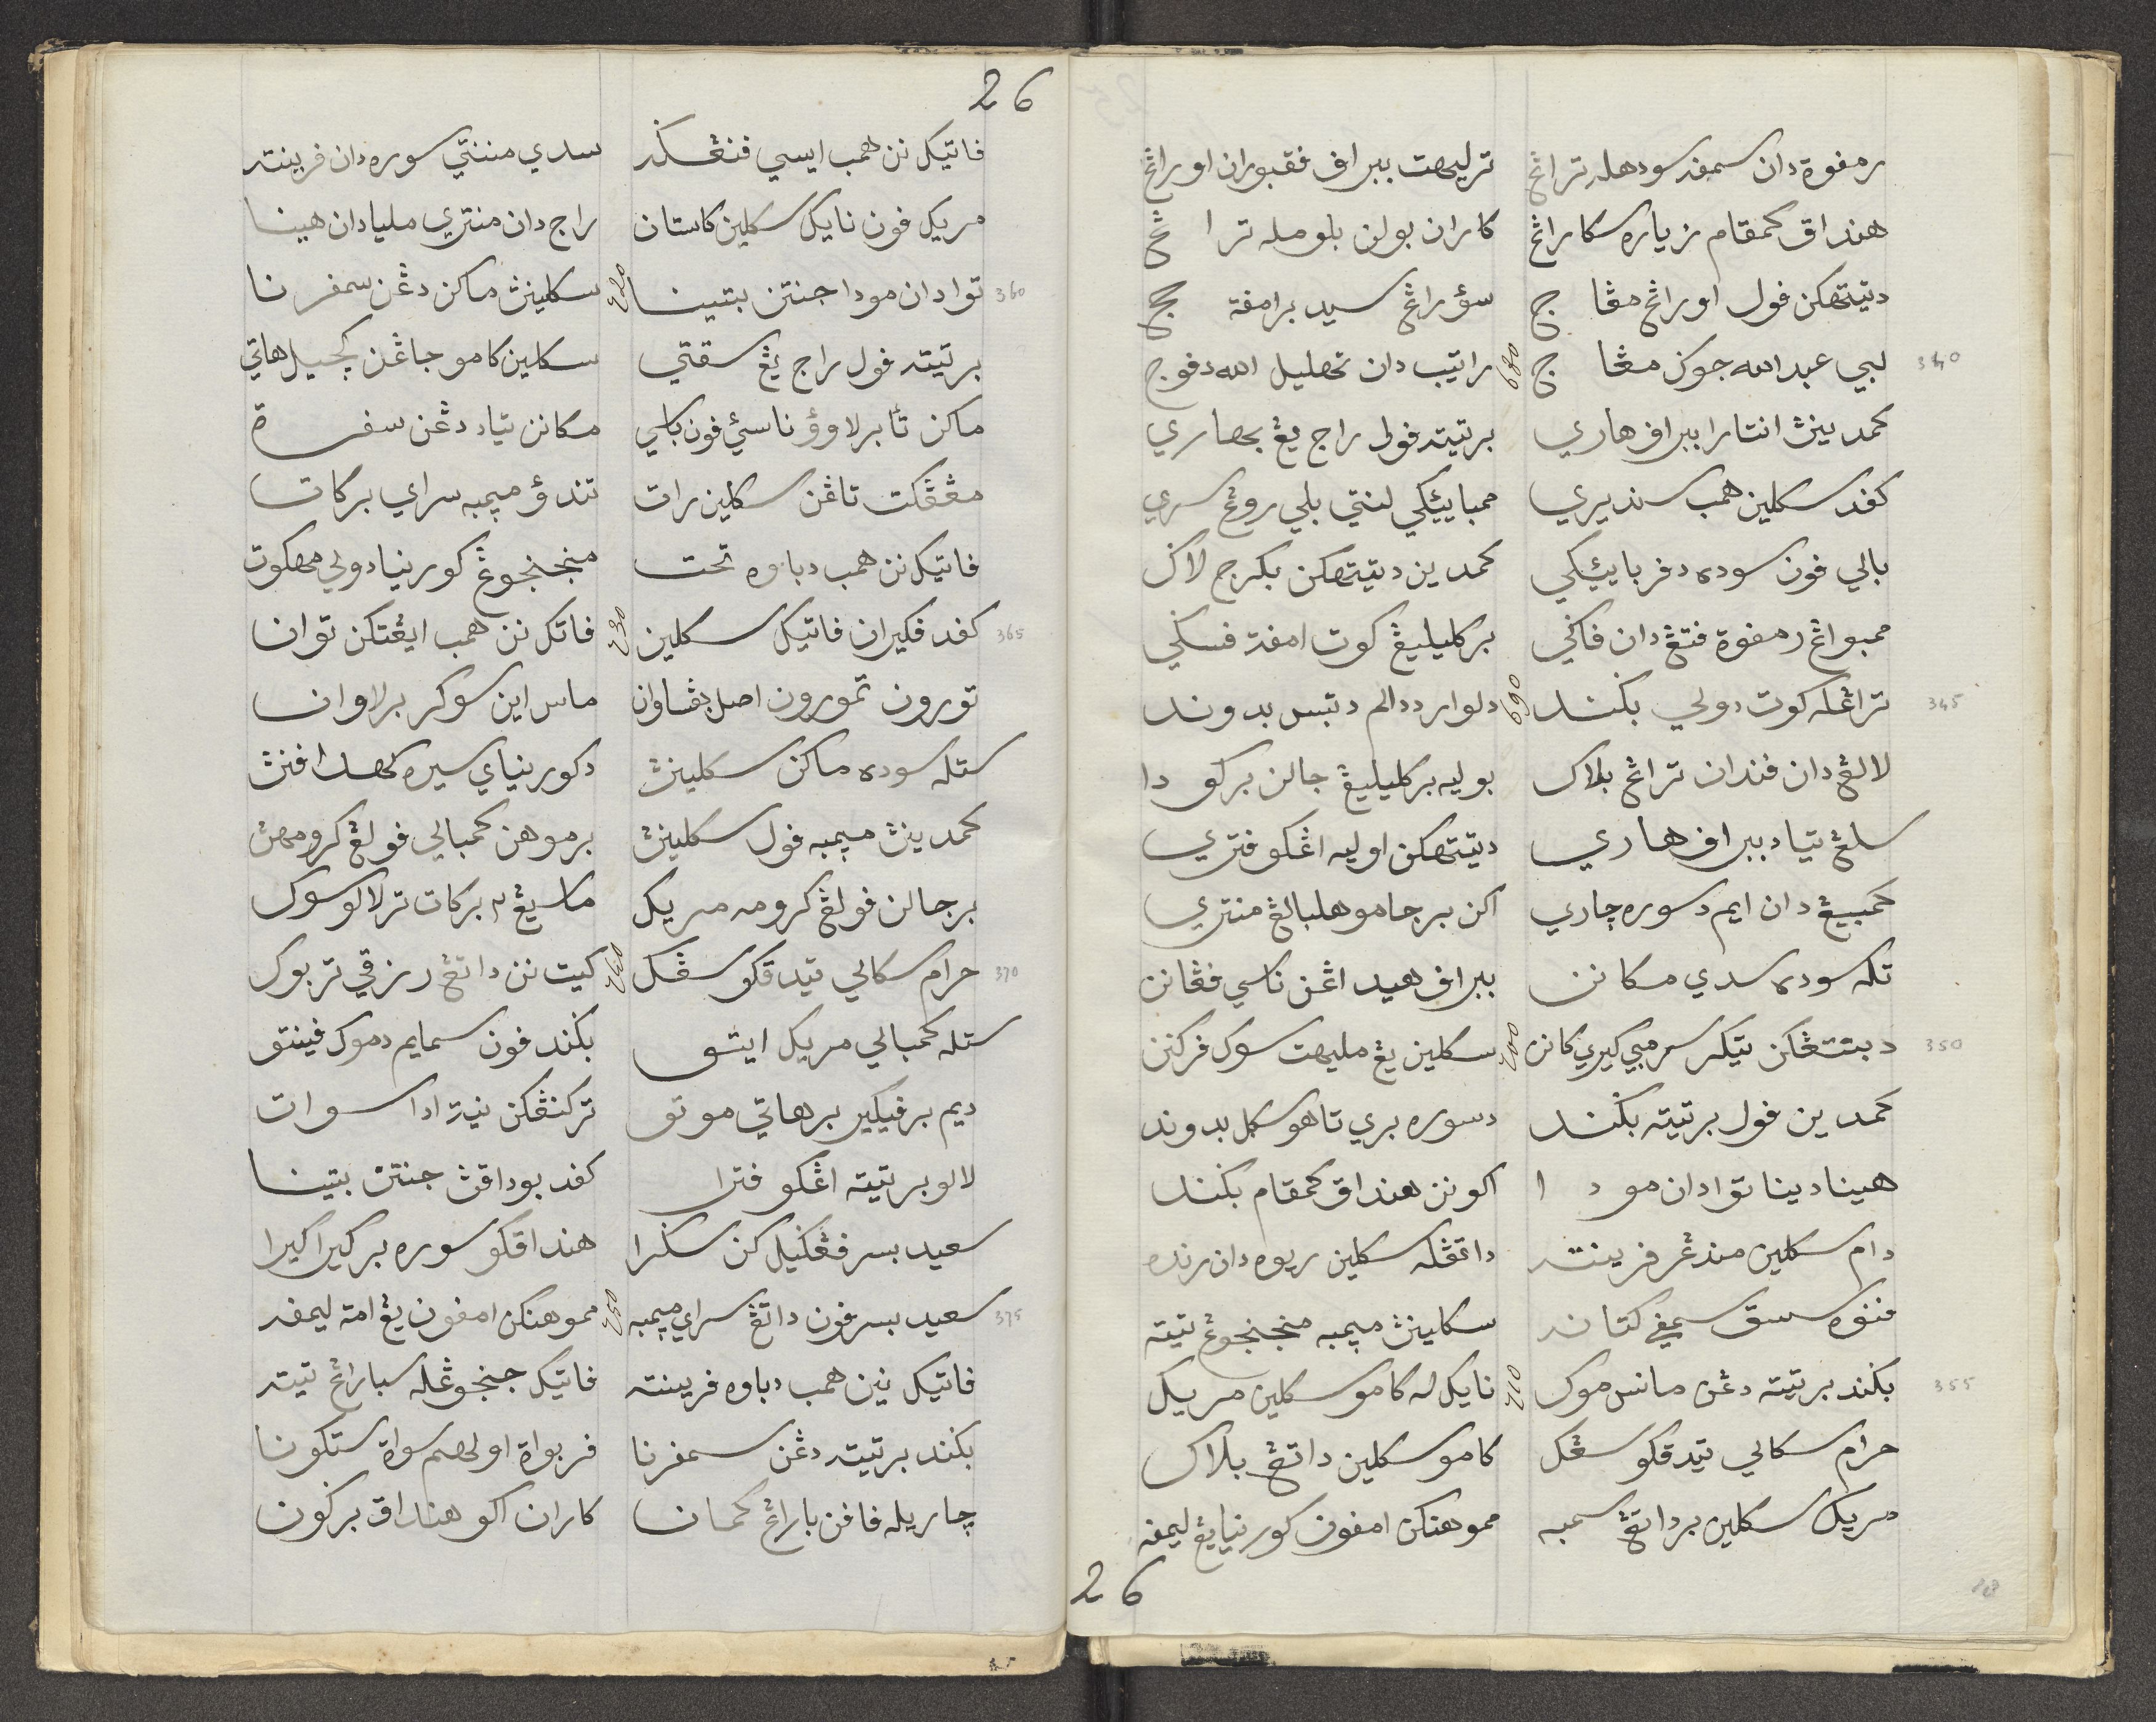 رمفوة دان سمفه سودهله تراڠ ترليهت ببراف فقبوران اورڠ
هنداق كمقام زياره سكارڠ كاران بولن بلومله تراڠ
دتيتهكن فول اورڠ مڠاج سؤرڠ سيد برامفة حج
340 لبي عبدالله جوك مڠاج 680 راتيب دان تحليل الله دفوج
كمدينڽ انتارا ببراف هاري برتيته فول راج يڠ بحصاري
كفد سكلين همب سنديري ممبايئكي لنتي بلي روڠ سري
بالي فون سوده دفربايئكي كمدين دتيتهكن بكرج لاݢي
ممبواڠ رمفوة فنتڠ دان فاݢي بركليليڠ كوت امفة فسݢي
345 تراڠله كوت دولي بݢند 690 دلوار ددالم دتبس بدوند
لالڠ دان فندان تراڠ بلاك بوليه بركليليڠ جالن بركودا
سلڠ تياد ببراف هاري دتيتهكن اوليه اڠكو فتري
كمبيڠ دان ايم دسوره چاري اكن برجامو هلبالڠ منتري
تله سوده سدي مكانن ببراف هيداڠن ناسي فڠانن
350 دبنتڠكن تيكر سرمبي كيري كانن 700 سكلين يڠ مليهت سوك فركنن
كمدين فول برتيته بݢند دسوره بري تاهو سكل بدوند
هينا دينا توا دان مودا اكو نن هنداق كمقام بݢند
دام سكلين مندڠر فرينته داتڠله سكلين ريوه دان رنده
فنوه سسق سمڤي كتانه سكلينڽ مپمبه منجنجوڠ تيته
355 بݢند برتيته دڠن مانس موك 710 نايكله كامو سكلين مريك
حرام سكالي تيدقكو سڠك كامو سكلين داتڠ بلاك
مريك سكلين برداتڠ سمبه مموهنكن امفون كورنيا يڠ ليمفه
26
26
فاتيك نن همب ايسي فنڠݢه سدي مننتي سوره دان فرينته
مريك فون نايك سكلين كاستان راج دان منتري مليا دان هينا
360 توا دان مودا جنتن بتينا 720 سكلينڽ ماكن دڠن سمفرنا
برتيته فول راج يڠ سقتي سكلين كامو جاڠن كچيل هاتي
ماكن تأ برلاوؤ ناسئ فون باسي مكانن تياد دڠن سفرة
مڠڠكت تاڠن سكلين رات تندؤ مپمبه سراي بركات
فاتيك نن همب دباوه تحت منجنجوڠ كورنيا دولي محكوت
365 كفد فكيران فاتيك سكلين 730 فاتك نن همب ايڠتكن توان
تورون تمورون اصل بڠساوان ماس اين سوكر برلاوان
ستله سوده ماكن سكلينڽ دكورنياي سيره كهدافنڽ
كمدينڽ مپمبه فول سكلينڽ برموهن كمبالي فولڠ كرومهڽ
برجالن فولڠ كرومه مريك ماسيڠ٢ بركات ترلالو سوك
370 حرام سكالي تيدقكو سڠك 740 كيت نن داتڠ رزقي تربوك
ستله كمبالي مريك ايتو بݢند فون سمايم دموك فينتو
ديم برفيكير برهاتي موتو تركنڠكن نية ادا سوات
لالو برتيته اڠكو فترا كفد بوداقڽ جنتن بتينا
سعيد بسر فڠݢيلكن سݢرا هنداقكو سوره بركيرا كيرا
375 سعيد بسر فون داتڠ سراي مپمبه 750 مموهنكن امفون يڠ امة ليمفه
فاتيك نين همب دباوه فرينته فاتيك جنجوڠله سبارڠ تيته
بݢند برتيته دڠن سمفرنا فربواة اولهم سواة ستكونا
چاريله فافن بارڠ كمانا كاران اكو هنداق برݢون